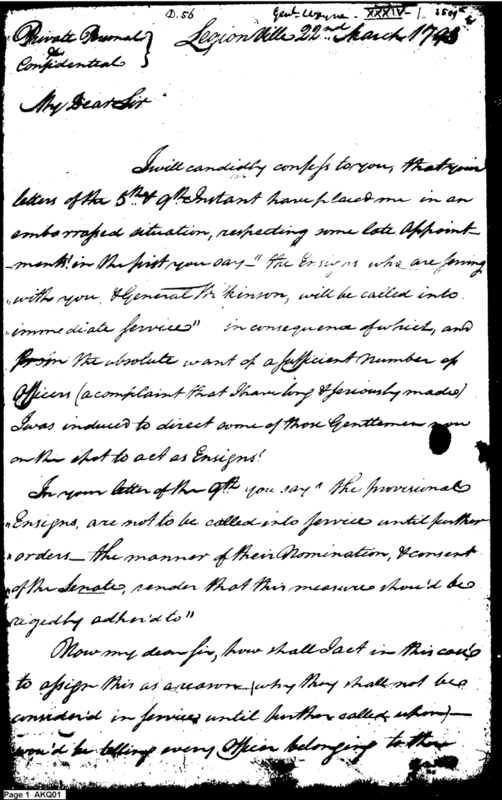 D. 56 Genl Wayne XXXIV-1
Private Personal & Confidential
Legion Ville 22nd March 1793
My Dear Sir
I will candidly confess to you, that your
letters of the 5th & 9th Instant have placed me in an
embarrassed situation, respecting some late Appoint
-ments! in the first you say-" the Ensigns who are
"with you, & General Wilkinson, will be called into
"immediate service" in consequence of which, and
the absolute want of a sufficient number of
Officers (a complaint that I have long & seriously made)
I was induced to direct some of those Gentlemen now
on the spot to act as Ensigns!
In your letter of the 9th you say" the provisional
"Ensigns, are not to be called into service until further
"orders- the manner of their Nomination, & consent
"of the Senate, render that this measure shou'd be
rigedly adher'd to"
Now my dear Sir, how shall I act in this case
to assign this as a reason (why they shall not be
consider'd in service until further called upon)-
wou'd be telling every Officer belonging to the
Page 1 AKQ01